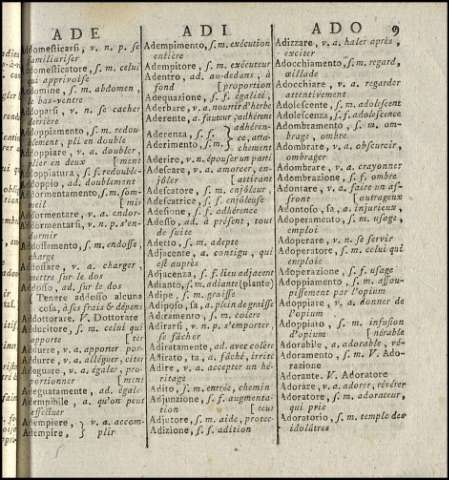 ADE
ADI
ADO
9
Addomesticarsi, v. n. p. se
familiariser
Addomesticatore, s. m. celui
qui apprivoise
Addomine, s. m. abdomen,
le bas-ventre
derrière
Addoppiamento, s. m. redou-
blement, pli en double
Addoppiare, v. a. doubler,
plier en deux [ment
Addoppiatura, s. f. redouble-
Addoppio, ad. doublement
Addormentamento, s. m. som-
meil [mir
Addormentare, v. a. endor-
Addormentarsi, v. n. p. s'en-
dormir
Addossamento, s. m. endosse
charge
Addossare, v. a. charger,
mettre sur le dos
Addosso, ad. sur le dos
Tenere addosso alcuna
cosa, à ses frais & dépens
Addottorare. V. Dottorare
Adducitore, s. m. celui qui
apporte [ter
Addurre, v. a. apporter por-
Addurre, v. a. alléguer, citer
Adeguare, v. a. égaler, pro-
portionner [ment
Adeguatamente, ad. égale-
Adempibile, a. qu'on peut
effectuer
Adempiere, } v. a. accom-
Adempire, } plir
Adempimento, s. m. exécution
entière
Adempitore, s. m. exécuteur
Adentro, ad. au-dedans, à
fond [proportion
Adequazione, s. f. égalité,
Aderbare, v. a. nourrir d'herbe
Aderente, a. fauteur, adhérent
Aderenza, s. f. } adhéren-
ce, atta-
Aderimento, s. m. } chement
Aderire, v. a. épouser un parti
Adescare, v. a. amorcer, en-
jôler [attirant
Adescatore, s. m. enjôleur,
Adescatrice, s. f. enjôleuse
Adesione, s. f. adhérence
Adesso, ad. à présent, tout
de suite
Adetto, s. m. adepte
Adjacente, a. contigu, qui
est auprès
Adjacenza, s. f. lieu adjacent
Adianto, s. m. adiante (plante)
Adipe, s. m. graisse
Adiposo, sa, a. plein de graisse
Adiramento, s. m. colere
Adirarsi, v. n. p. s'emporter,
se fâcher
Adiratamente, ad. avec colère
Adirato, ta, a. fâché, irrité
Adire, v. a. accepter un hé-
ritage
Adito, s. m. entrée, chemin
Adjunzione, s. f. augmenta-
tion [teur
Adjutore, s. m. aide, protec-
Adizione, s. f. adition
Adizzare, v. a. haler après,
exciter
Adocchiamento, s. m. regard,
œillade
Adocchiare, v. a. regarder
attentivement
Adolescente, s. m. adolescent
Adolescenza, s. f. adolescence
Adombramento, s. m. om-
brage, ombre
Adombrare, v. a. obscurcir,
ombrager
Adombrare, v. a. crayonner
Adombrazione, s. f. ombre
Adontare, v. a. faire un af-
front [outrageux
Adontoso, sa, a. injurieux,
Adoperamento, s. m. usage,
emploi
Adoperare, v. n. se servir
Adoperatore, s. m. celui qui
emploie
Adoperazione, s. f. usage
Adoppiamento, s. m. assou-
pissement par l'opium
Adoppiare, v. a. donner de
l'opium
Adoppiato, s. m. infusion
d'opium [nérable
Adorabile, a. adorable, vé-
Adoramento, s. m. V. Ado-
razione
Adorante. V. Adoratore
Adorare, v. a. adorer, révérer
Adoratore, s. m. adorateur,
qui prie
Adoratorio, s. m. temple des
idolâtres